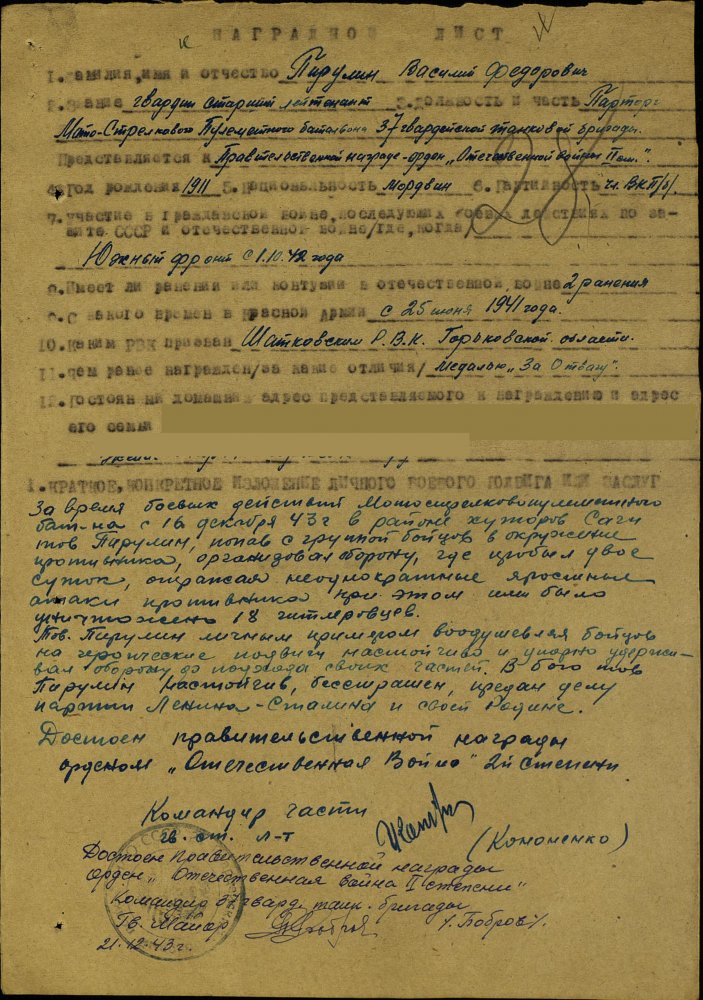 НАГРАДНОЙ ЛИСТ
1. Фамилия, имя и отчество Пирулин Василий Федорович
2. Звание гвардии старший лейтенант 3. Должность и часть Парторг
Мото-Стрелкового Пулеметного батальона 37 гвардейской танковой бригады.
Представляется к Правительственной награде-орден "Отечественной войны II ст.".
4. Год рождения 1911 5. Национальность Мордвин 6. Партийность чл. ВКП/б/
28
7. Участие в гражданской войне, последующих боевых действиях по за-
щите СССР и отечественной войне/где, когда/
Южный фронт с 1.10.42 года
8. Имеет ли ранения или контузии в отечественной войне 2 ранения
9. С какого времени в Красной Армии с 25 июня 1941 года.
10. Каким РВК призван Шатковским Р.В.К. Горьковской области.
11. Чем ранее награжден/за какие отличия/ Медалью "За Отвагу".
12. Постоянный домашний адрес представляемого к награждению и адрес
его семьи
1. КРАТКОЕ, КОНКРЕТНОЕ ИЗЛОЖЕНИЕ ЛИЧНОГО БОЕВОГО ПОДВИГА ИЛИ ЗАСЛУГ
За время боевых действий Мотострелковопулеметного
бат-на с 16 декабря 43г в районе хуторов Саги
тов Пирулин, попав с группой бойцов в окружение
противника, организовал оборону, где пробыл двое
суток, отражая неоднократные яростные
атаки противника при этом ими было
уничтожено 18 гитлеровцев.
Тов. Пирулин личным примером воодушевляя бойцов
на героические подвиги настойчиво и упорно удержи-
вал оборону до подхода своих частей. В бою тов
Пирулин настойчив, бесстрашен, предан делу
партии Ленина-Сталина и своей Родине.
Достоен правительственной награды
орденом "Отечественная Война" 2й степени
Командир части
гв. ст. л-т (Кононенко)
Достоен правительственной награды
орден "Отечественная война II степени"
Командир 37 гвард. танк. бригады
Гв. Майор /. Бобров/.
21.12.43г.